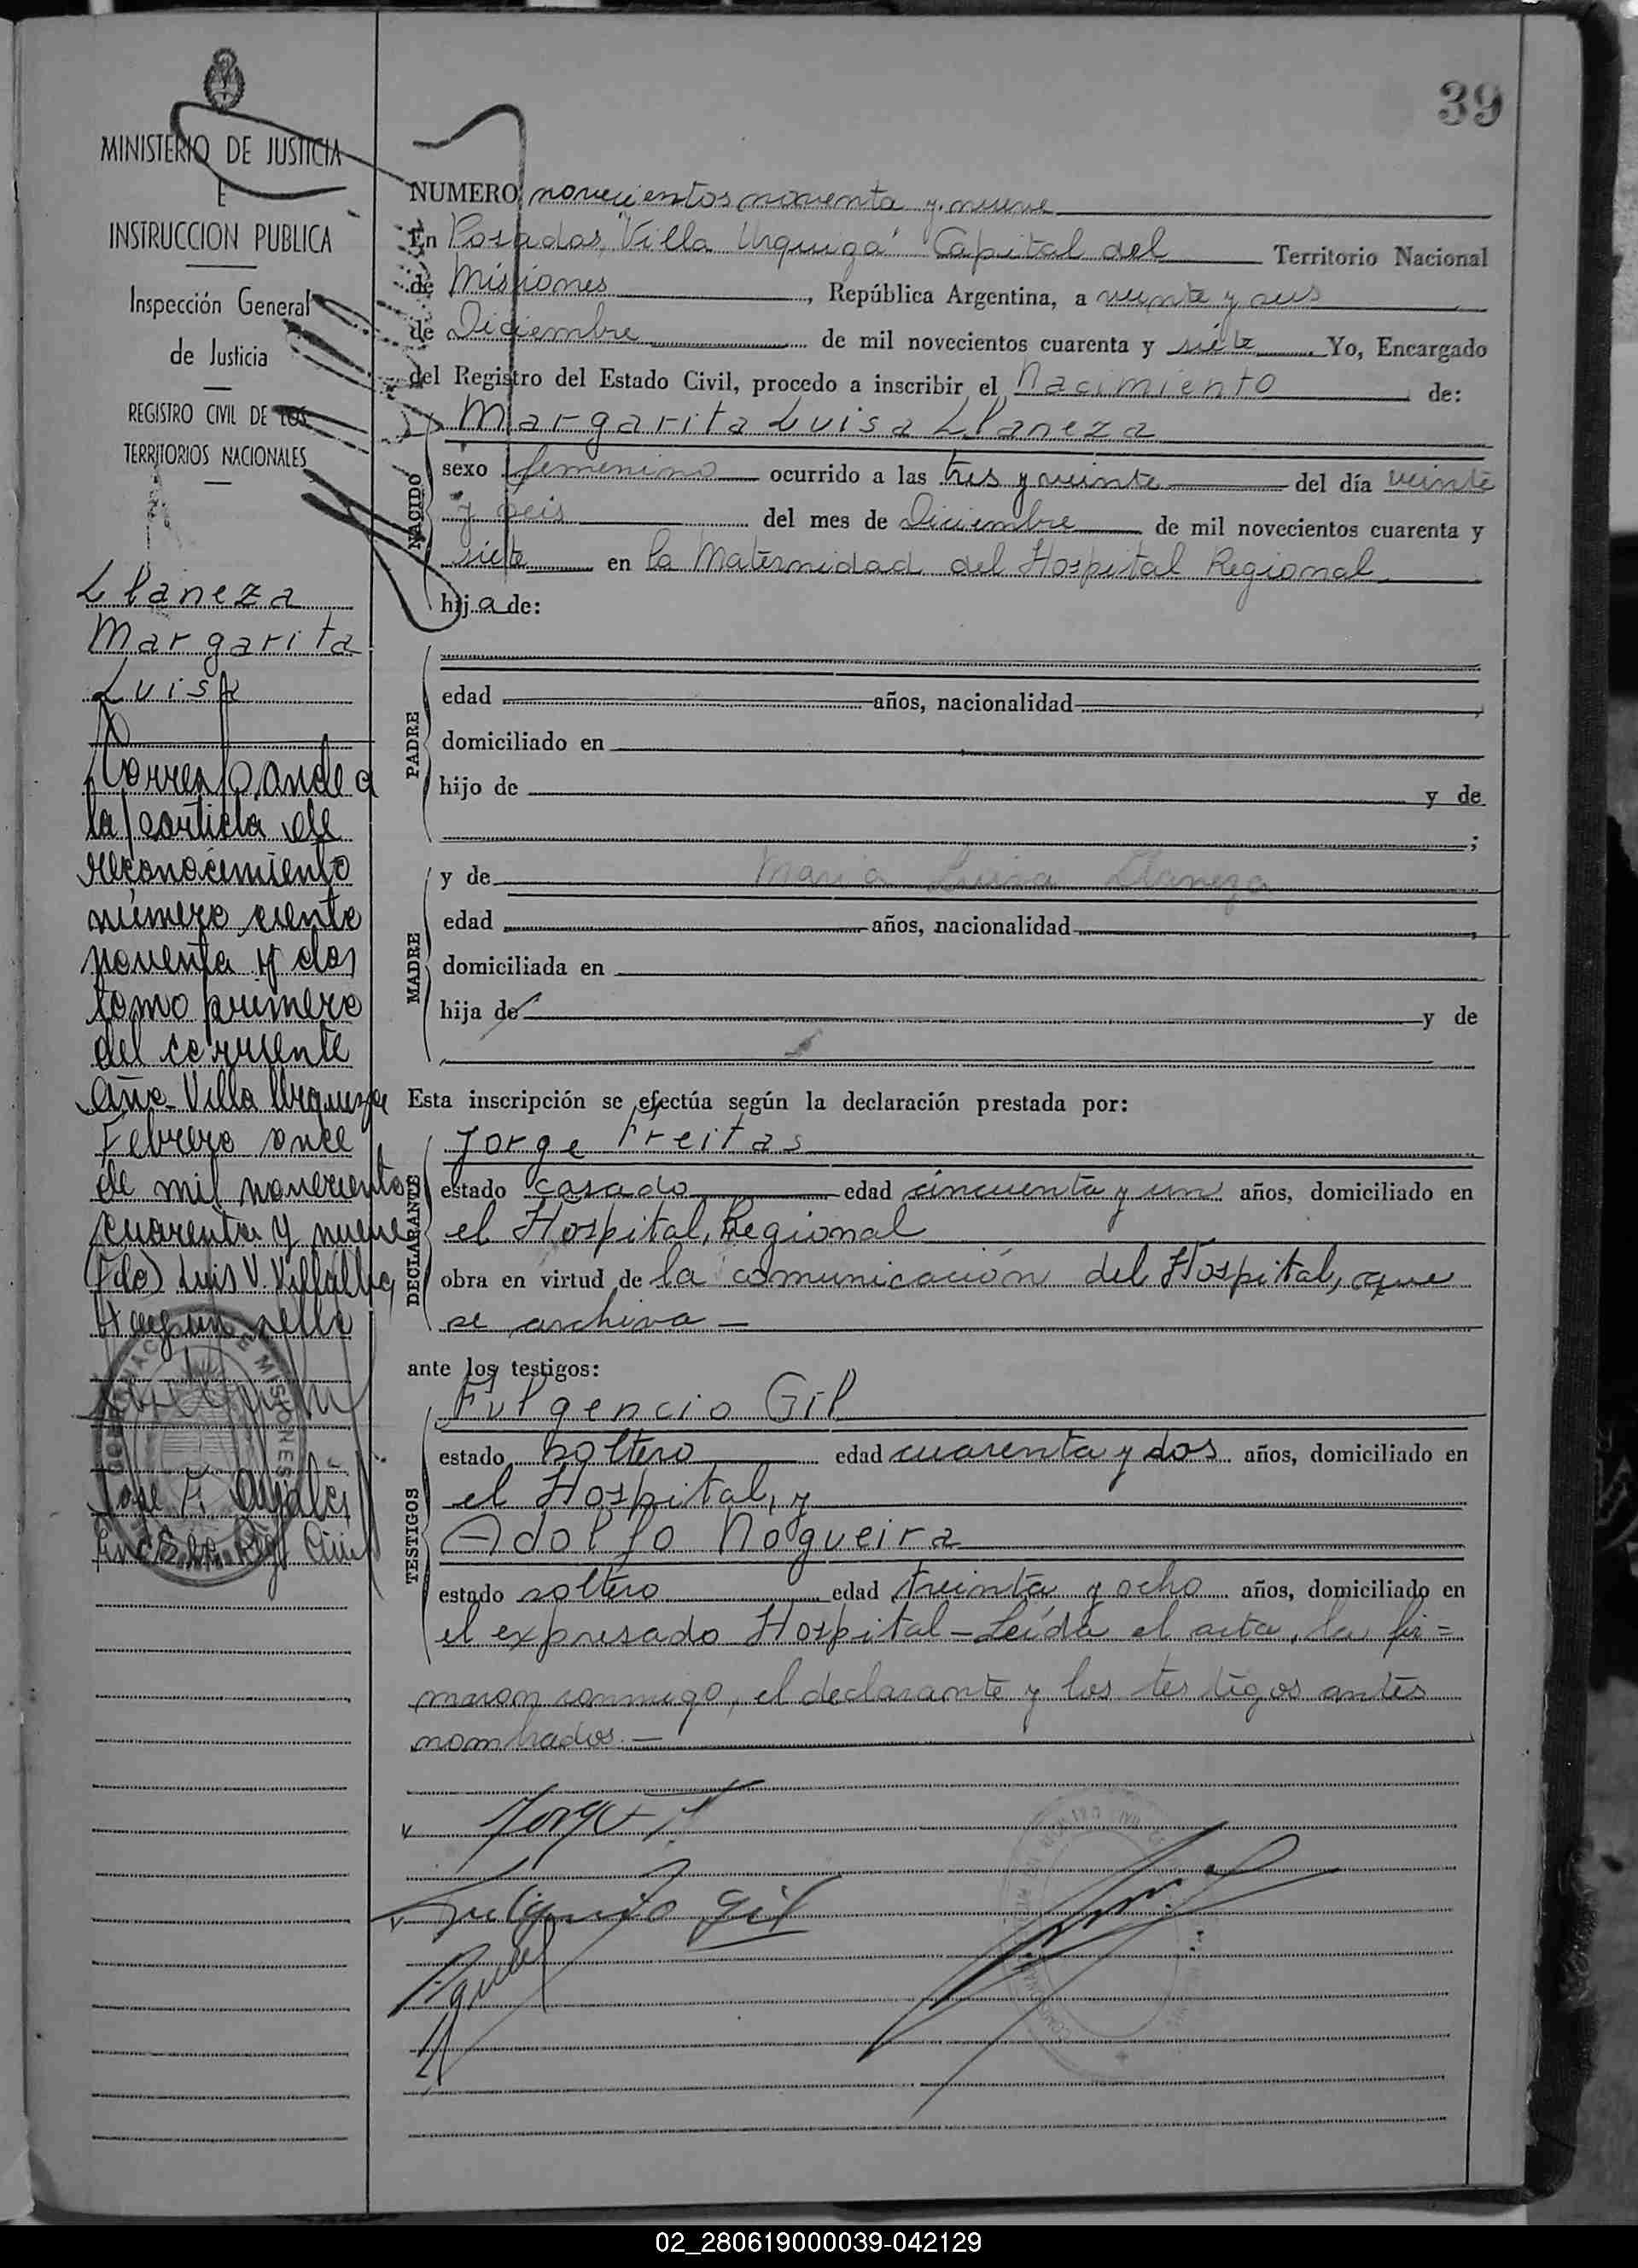 39
MINISTERIO DE JUSTICIA
E
INSTRUCCION PUBLICA
Inspección General
de Justicia
REGISTRO CIVIL DE LOS
TERRITORIOS NACIONALES
Llaneza
Margarita
Luisa
Corresponde a
la partida de
reconocimiento
número ciento
noventa y dos
tomo primero
del corriente
año. Villa Urquiza
Febrero once
de mil novecientos
cuarenta y nueve
(Fdo) Luis V. Villalba
Hay un sello
NUMERO novecientos noventa y nueve
En Posadas, "Villa Urquiza" Capital del Territorio Nacional
de Misiones, República Argentina, a veinte y seis
de Diciembre de mil novecientos cuarenta y siete. Yo, Encargado
del Registro del Estado Civil, procedo a inscribir el Nacimiento de:
Margarita Luisa Llaneza
NACIDO
sexo femenino ocurrido a las tres y veinte del día veinte
y seis del mes de Diciembre de mil novecientos cuarenta y
siete en la Maternidad del Hospital Regional
hija de:
PADRE
edad años, nacionalidad
domiciliado en
hijo de y de
;
MADRE
y de Maria Luisa Llaneza
edad años, nacionalidad
domiciliada en
hija de y de
Esta inscripción se efectúa según la declaración prestada por:
DECLARANTE
Jorge Freitas
estado casado edad cincuenta y un años, domiciliado en
el Hospital Regional
obra en virtud de la comunicación del Hospital, que
se archiva -
ante los testigos:
TESTIGOS
Fulgencio Gil
estado soltero edad cuarenta y dos años, domiciliado en
el Hospital, y
Adolfo Nogueira
estado soltero edad treinta y ocho años, domiciliado en
el expresado Hospital - Leída el acta, la fir=
maron conmigo, el declarante y los testigos antes
nombrados. -
Jorge F.
Fulgencio Gil
02_280619000039-042129